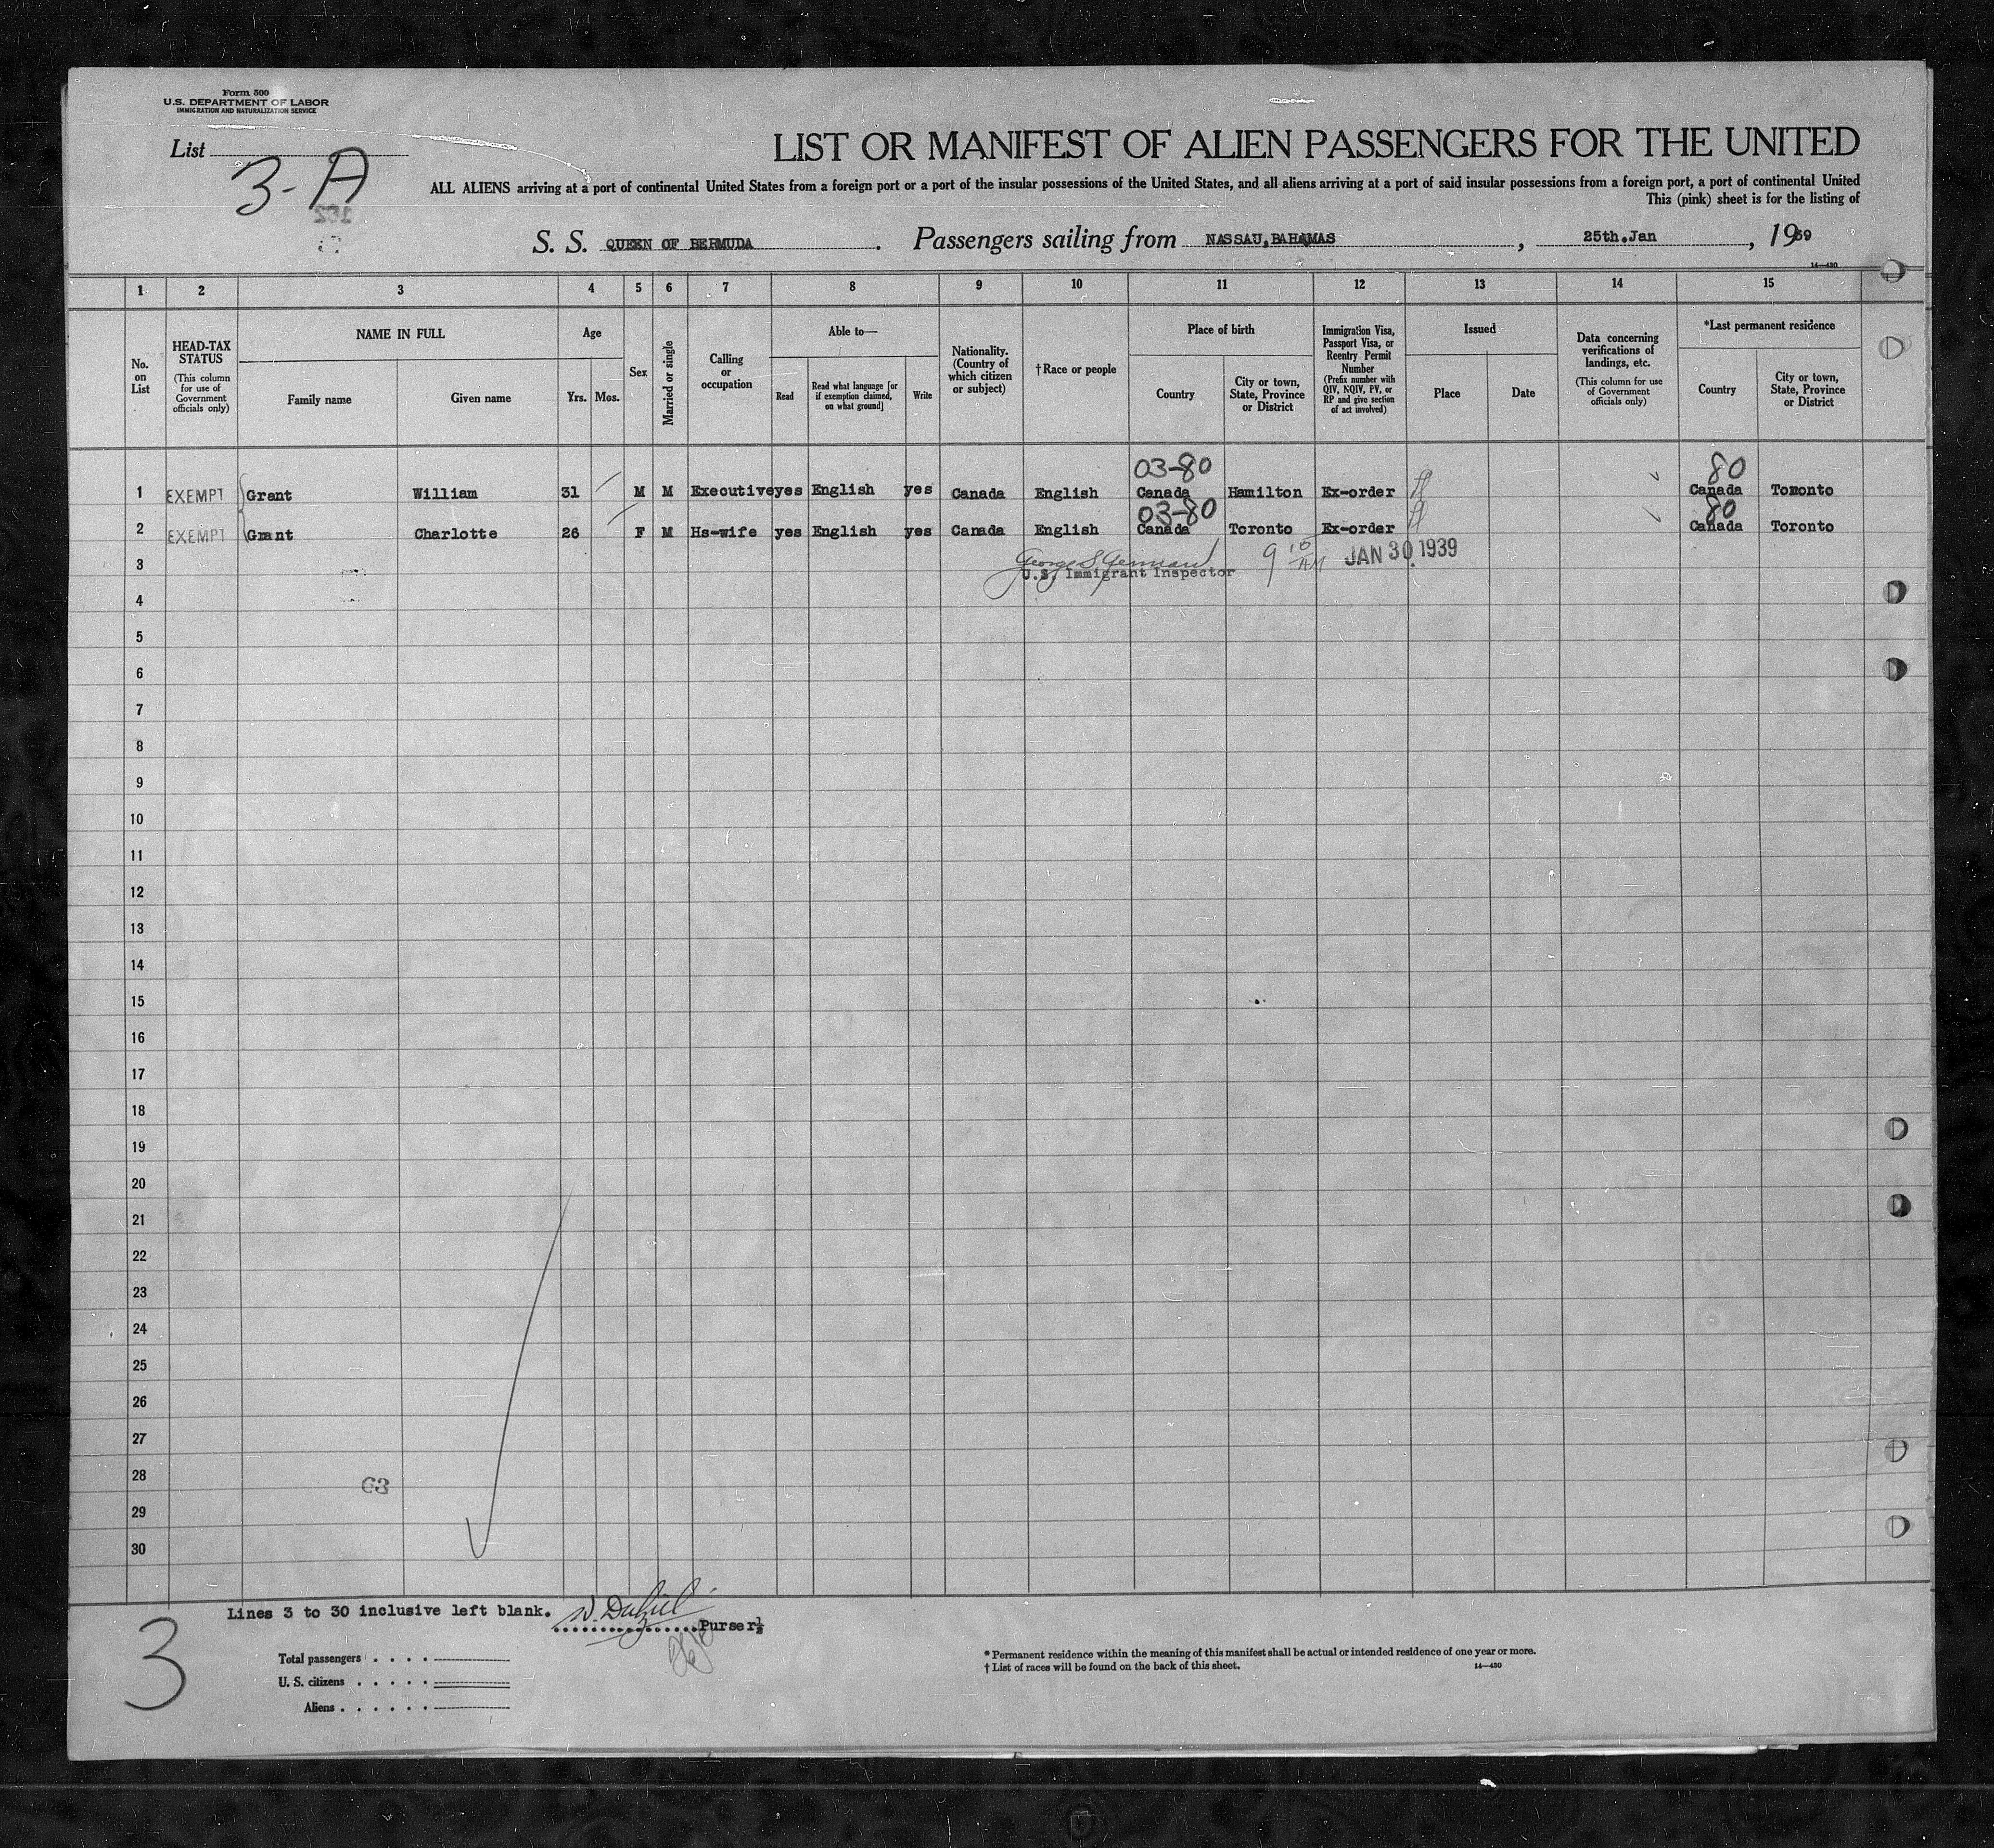 Form 500
U.S. DEPARTMENT OF LABOR
IMMIGRATION AND NATURALIZATION SERVICE
List
3-A
LIST OR MANIFEST OF ALIEN PASSENGERS FOR THE UNITED
ALL ALIENS arriving at a port of continental United States from a foreign port or a port of the insular possessions of the United States, and all aliens arriving at a port of said insular possessions from a foreign port, a port of continental United
This (pink) sheet is for the listing of
S. S. QUEEN OF BERMUDA. Passengers sailing from NASSAU,BAHAMAS, 25th.Jan, 1939
14—430
1 2 3 4 5 6 7 8 9 10 11 12 13 14 15
No. on List
HEAD-TAX STATUS
(This column for use of Government officials only)
NAME IN FULL
Family name Given name
Age
Yrs. Mos.
Sex
Married or single
Calling or occupation
Able to—
Read
Read what language [or if exemption claimed, on what ground]
Write
Nationality. (Country of which citizen or subject)
†Race or people
Place of birth
Country
City or town, State, Province or District
Immigration Visa, Passport Visa, or Reentry Permit Number
(Prefix number with QIV, NQIV, PV, or RP and give section of act involved)
Issued
Place Date
Data concerning verifications of landings, etc.
(This column for use of Government officials only)
*Last permanent residence
Country
City or town, State, Province or District
03-80 80
1 EXEMPT Grant William 31 M M Executive yes English yes Canada English Canada Hamilton Ex-order Canada Tomonto
03-80 80
2 EXEMPT Grant Charlotte 26 F M Hs-wife yes English yes Canada English Canada Toronto Ex-order Canada Toronto
3 9 10 AM JAN 30 1939
U.S. Immigrant Inspector
4
5
6
7
8
9
10
11
12
13
14
15
16
17
18
19
20
21
22
23
24
25
26
27
28
63
29
30
Lines 3 to 30 inclusive left blank.
Purser
3
Total passengers
U. S. citizens
Aliens
* Permanent residence within the meaning of this manifest shall be actual or intended residence of one year or more.
† List of races will be found on the back of this sheet.
14—430